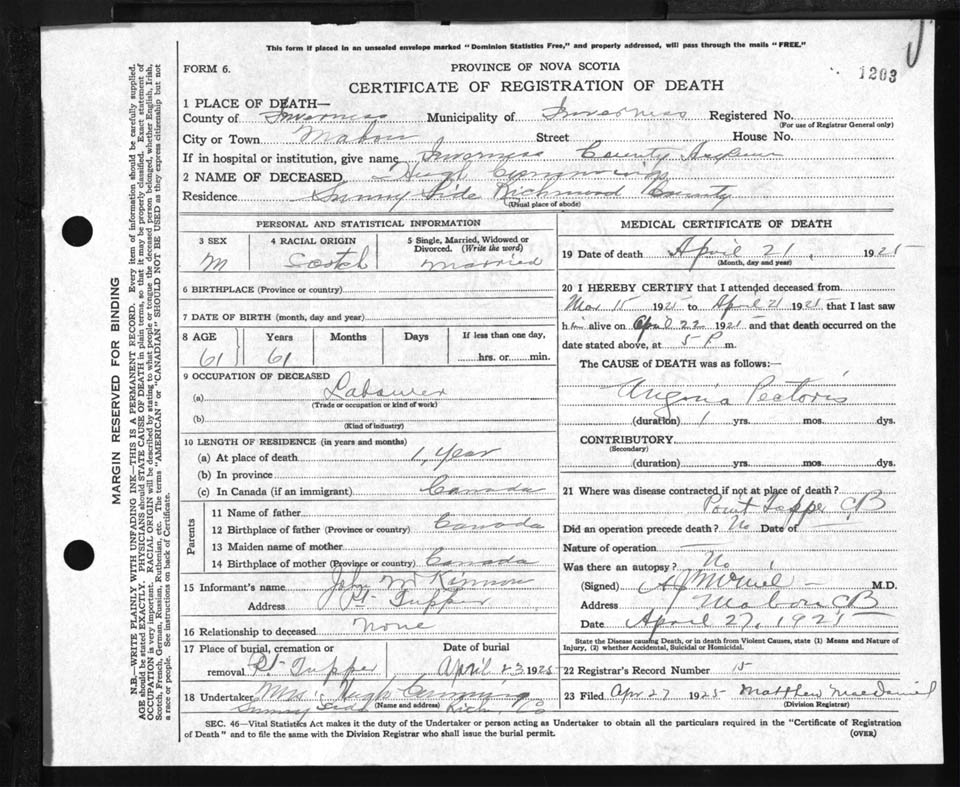 This form if placed in an unsealed envelope marked "Dominion Statistics Free," and properly addressed, will pass through the mails "FREE."
FORM 6.
PROVINCE OF NOVA SCOTIA
1203
CERTIFICATE OF REGISTRATION OF DEATH
1 PLACE OF DEATH—
County of Inverness Municipality of Inverness Registered No.
(For use of Registrar General only)
City or Town Mabou Street House No.
If in hospital or institution, give name Inverness County Asylum
2 NAME OF DECEASED. Hugh Cummings
Residence Sunny Side Richmond County
(Usual place of abode)
PERSONAL AND STATISTICAL INFORMATION
3 SEX 4 RACIAL ORIGIN 5 Single, Married, Widowed or Divorced. (Write the word)
M Scotch Married
6 BIRTHPLACE (Province or country)
7 DATE OF BIRTH (month, day and year)
8 AGE Years Months Days If less than one day,
61 61 hrs. or min.
9 OCCUPATION OF DECEASED
(a) Labourer
(Trade or occupation or kind of work)
(b)
(Kind of industry)
10 LENGTH OF RESIDENCE (in years and months)
(a) At place of death 1, Year
(b) In province
(c) In Canada (if an immigrant) Canada
Parents
11 Name of father
12 Birthplace of father (Province or country) Canada
13 Maiden name of mother
14 Birthplace of mother (Province or country) Canada
15 Informant's name John McKinnon
Address Pt Tupper
16 Relationship to deceased None
17 Place of burial, cremation or removal Pt Tupper Date of burial April 23 1925
18 Undertaker Mrs. Hugh Cummings
(Name and address)
Sunny Side Rich. Co
MEDICAL CERTIFICATE OF DEATH
19 Date of death April 21, 1925
(Month, day and year)
20 I HEREBY CERTIFY that I attended deceased from
Mar 15 1925 to April 21 1925 that I last saw
h alive on April 22 1925 and that death occurred on the
date stated above, at 5 P m.
The CAUSE OF DEATH was as follows:—
Angina Pectoris
(duration) 1 yrs. mos. dys.
CONTRIBUTORY
(Secondary)
(duration) yrs. mos. dys.
21 Where was disease contracted if not at place of death?
Point Tupper CB
Did an operation precede death? No Date of
Nature of operation
Was there an autopsy? No
(Signed) M.D.
Address Mabou CB
Date April 27, 1925
State the Disease causing Death, or in death from Violent Causes, state (1) Means and Nature of Injury, (2) whether Accidental, Suicidal or Homicidal.
22 Registrar's Record Number 15
23 Filed Apr 27 1925 Matthew MacDaniel
(Division Registrar)
SEC. 46—Vital Statistics Act makes it the duty of the Undertaker or person acting as Undertaker to obtain all the particulars required in the "Certificate of Registration
of Death" and to file the same with the Division Registrar who shall issue the burial permit. (OVER)
MARGIN RESERVED FOR BINDING
N.B.—WRITE PLAINLY WITH UNFADING INK—THIS IS A PERMANENT RECORD. Every item of information should be carefully supplied.
AGE should be stated EXACTLY. PHYSICIANS should STATE CAUSE OF DEATH in plain terms, so that it may be properly classified. Exact statement of
OCCUPATION is very important. RACIAL ORIGIN will be described by stating to what people or tongue the deceased person belonged, whether English, Irish,
Scotch, French, German, Russian, Ruthenian, etc. The terms "AMERICAN" or "CANADIAN" SHOULD NOT BE USED as they express citizenship but not
a race or people. See instructions on back of Certificate.